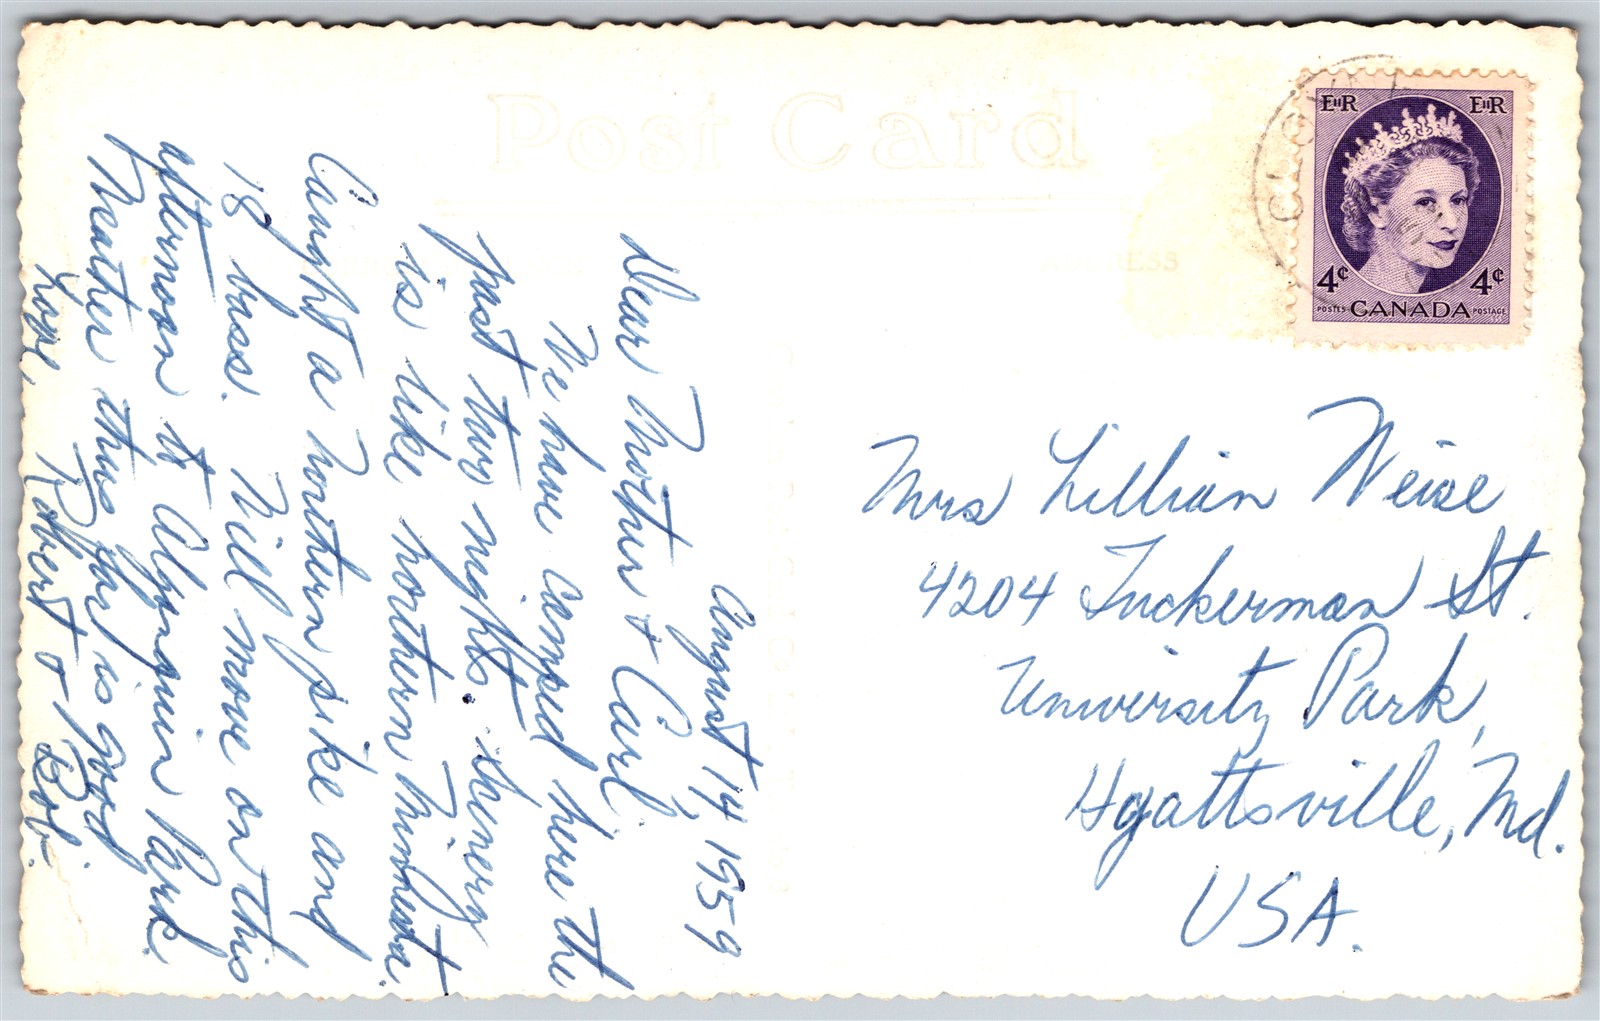 Post Card
ADDRESS
CLO
EIIR EIIR
4¢ 4¢
POSTES CANADA POSTAGE
August 14, 1959
Dear Mother & Carl,
We have camped here the
past two nights. Scenery
is like northern Minnesota.
Caught a northern pike and
18 bass. Will move on this
afternoon to Algonquin Park.
Weather thus far is good.
Love, Robert & Bob.
Mrs Lillian Weise
4204 Tuckerman St.
University Park,
Hyattsville, Md.
USA.